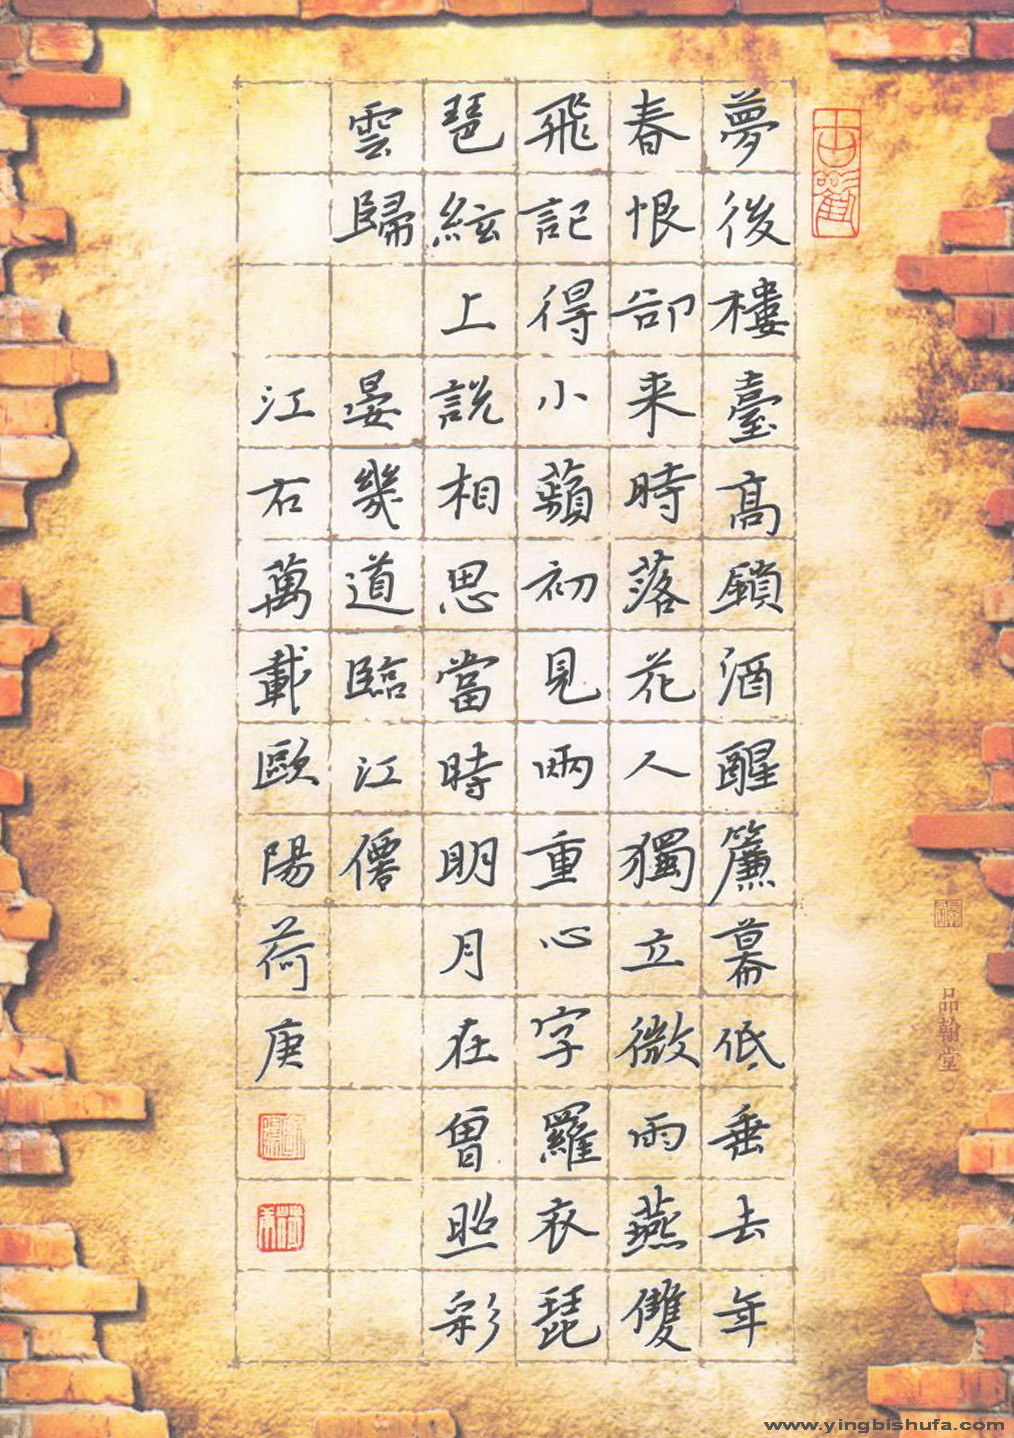 夢後樓臺高鎖酒醒簾幕低垂去年
春恨卻来時落花人獨立微雨燕雙
飛記得小蘋初見兩重心字羅衣琵
琶絃上說相思當時明月在曾照彩
雲歸
晏幾道臨江僊
江右萬載歐陽荷庚
品翰堂
www.yingbishufa.com